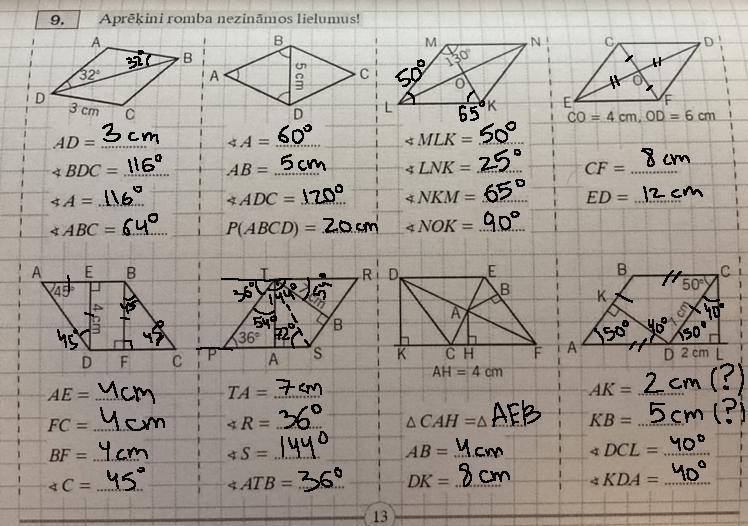 9. Aprēķini romba nezināmos lielumus!
A
B
32°
32°
D
3 cm
C
AD = 3 cm
∢BDC = 116°
∢A = 116°
∢ABC = 64°
B
A
5 cm
C
D
∢A = 60°
AB = 5 cm
∢ADC = 120°
P(ABCD) = 20 cm
M
N
130°
50°
O
L
65°
K
∢MLK = 50°
∢LNK = 25°
∢NKM = 65°
∢NOK = 90°
C
D
O
E
F
CO = 4 cm, OD = 6 cm
CF = 8 cm
ED = 12 cm
A E B
45°
45
4 cm
45°
45
D F C
AE = 4 cm
FC = 4 cm
BF = 4 cm
∢C = 45°
T R
36° 144° 54°
7 cm
54°
B
36°
72°
P A S
TA = 7 cm
∢R = 36°
∢S = 144°
∢ATB = 36°
D E
B
A
K C H F
AH = 4 cm
△CAH = △AEB
AB = 4 cm
DK = 8 cm
B C
50°
K
40°
7 cm
50° 40° 50°
A D 2 cm L
AK = 2 cm (?)
KB = 5 cm (?)
∢DCL = 40°
∢KDA = 40°
13